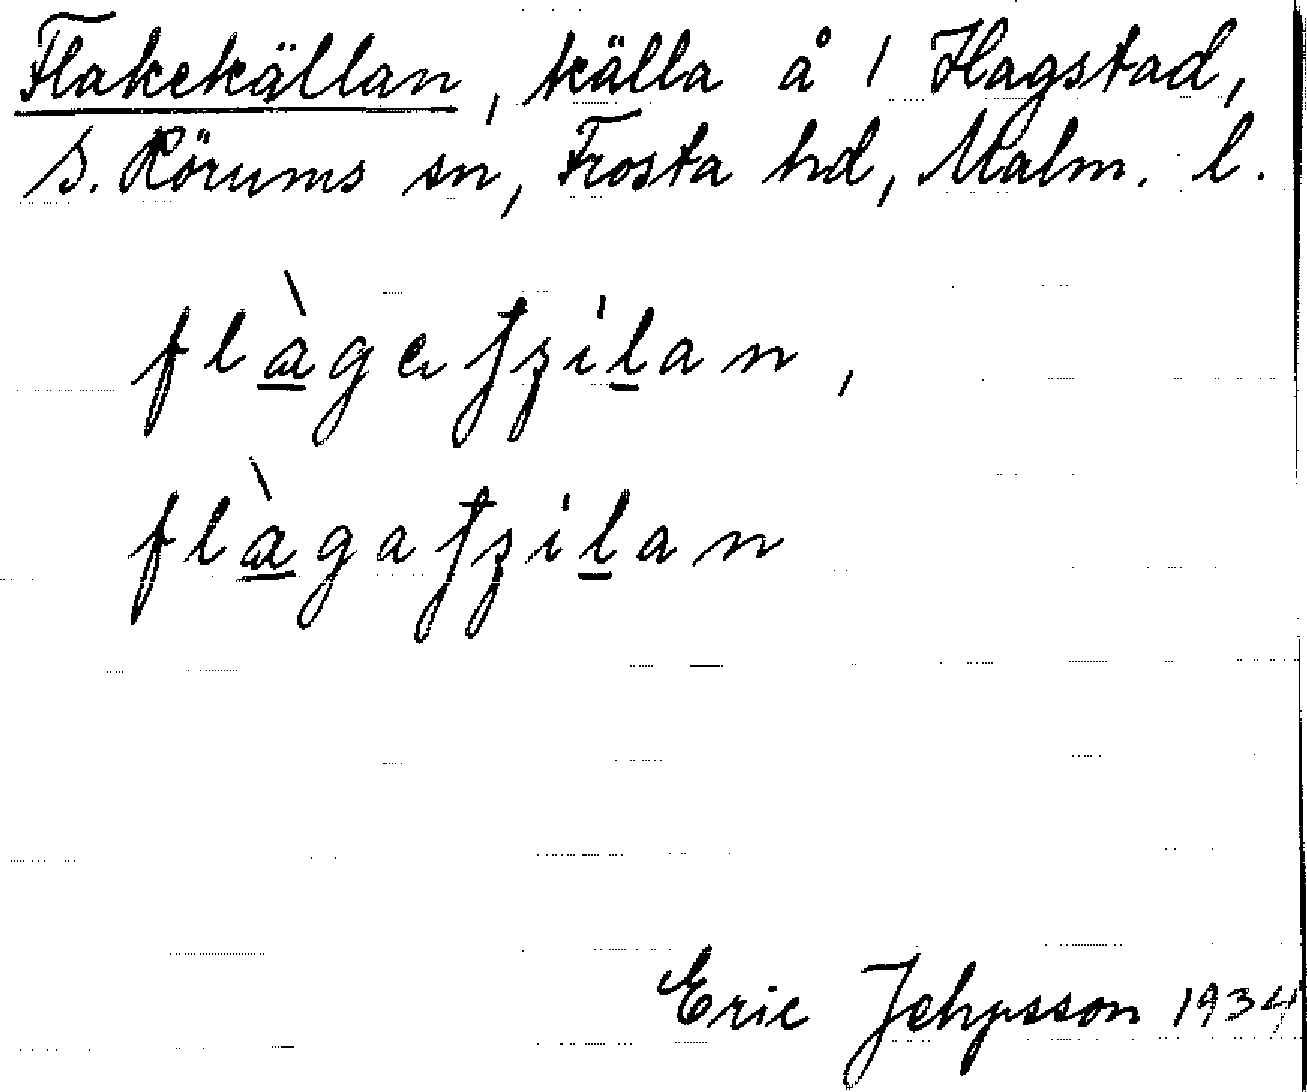 Flakekällan, källa å 1 Hagstad,
S. Rörums sn, Frosta hd, Malm. l.
flàgefzilan,
flàgafzilan
Eric Jehpsson 1934